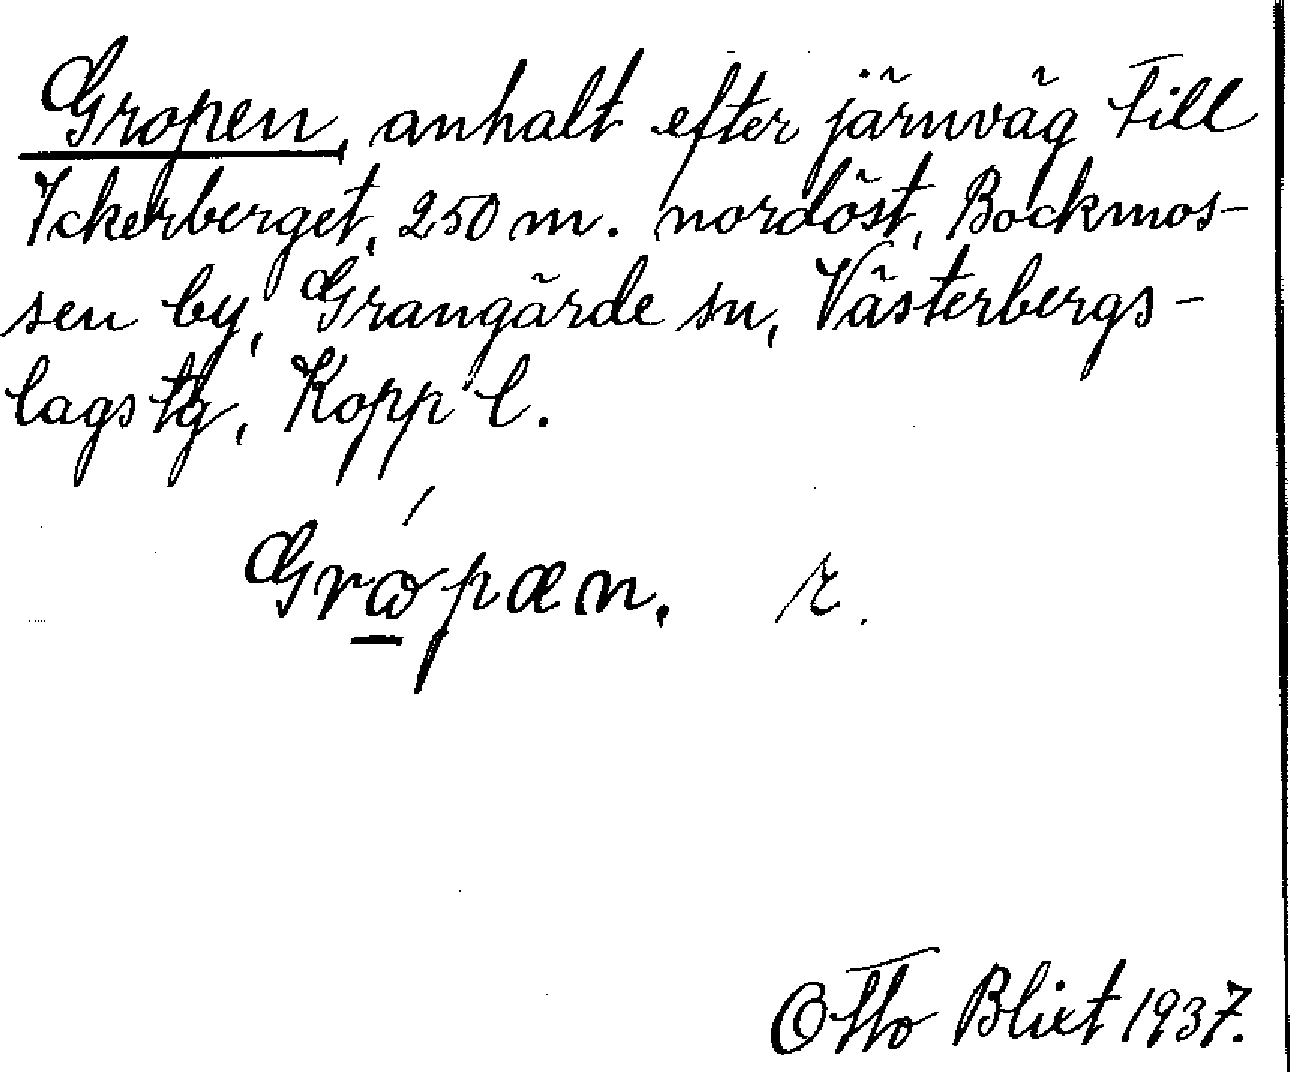 Gropen, anhalt efter järnväg till
Ickerberget, 250 m. nordöst, Bockmos-
sen by, Grangärde sn, Västerbergs-
lags tg, Kopp l.
Grɷ́pæn. r.
Otto Blixt 1937.